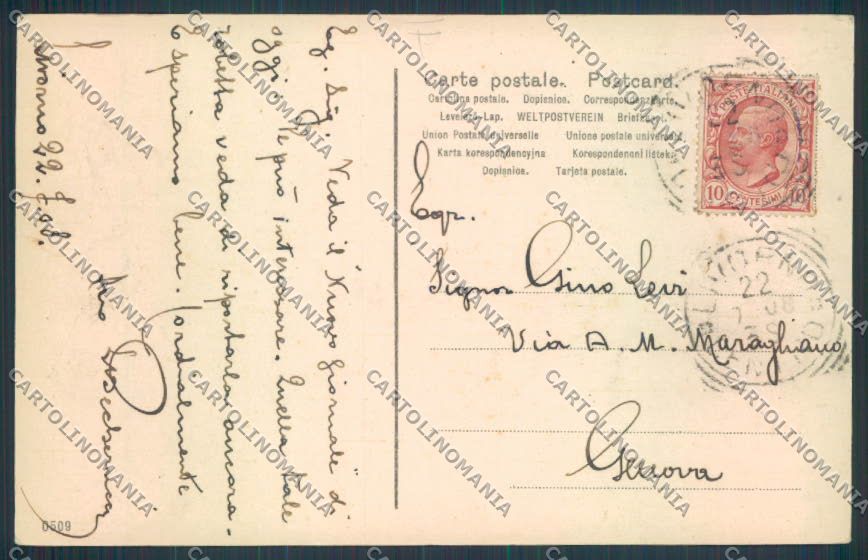 Carte postale. Postcard.
Cartolina postale. Dopisnice. Correspondenzkarte.
Levelező-Lap. WELTPOSTVEREIN Briefkort.
Union Postale universelle Unione postale universale
Karta korespondencyjna Korespondenční lístek
Dopisnica. Tarjeta postale.
POSTE ITALIANE
10 CENTESIMI 10
22
7 08
Egr.
Signor Gino Levi
Via A. M. Maragliano
Genova
Livorno 22.7.08.
Eg. Sig. Veda il Nuovo giornale di
oggi. Le può interessare. Quella tale
veda di riportarla ancora.
E speriamo bene. Cordialmente
Suo
0509
CARTOLINOMANIA